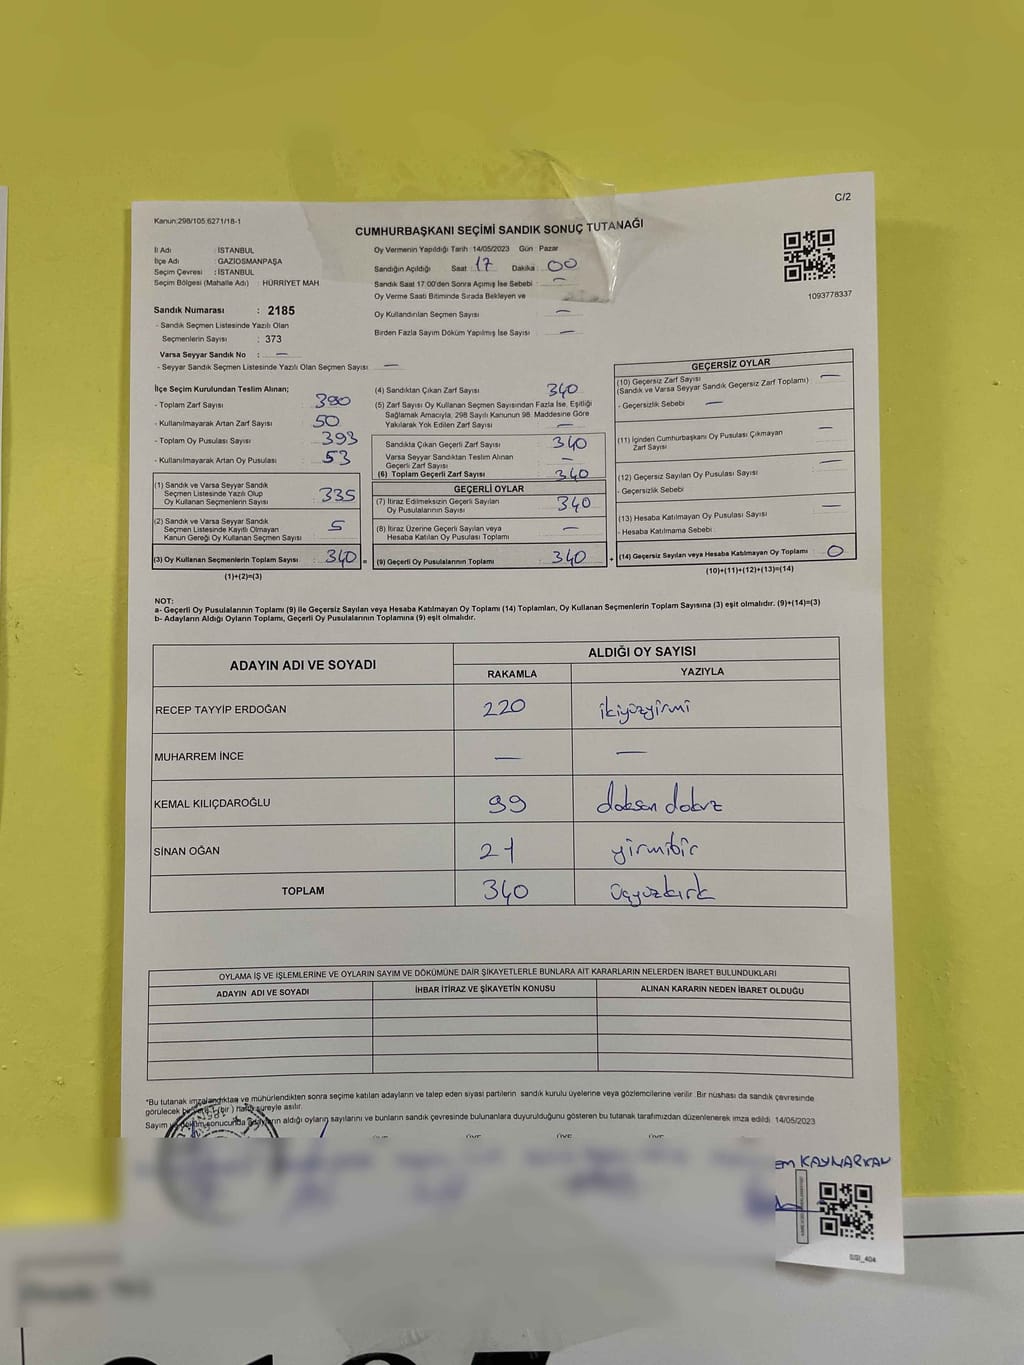 C/2
Kanun:298/105.6271/18-1
CUMHURBAŞKANI SEÇİMİ SANDIK SONUÇ TUTANAĞI
İl Adı : İSTANBUL
İlçe Adı : GAZİOSMANPAŞA
Seçim Çevresi : İSTANBUL
Seçim Bölgesi (Mahalle Adı) : HÜRRİYET MAH
Oy Vermenin Yapıldığı Tarih : 14/05/2023 Gün : Pazar
Sandığın Açıldığı Saat : 17 Dakika : 00
Sandık Saat 17.00'den Sonra Açımış İse Sebebi : —
Oy Verme Saati Bitiminde Sırada Bekleyen ve
Oy Kullandırılan Seçmen Sayısı —
Birden Fazla Sayım Döküm Yapılmış İse Sayısı —
1093778337
Sandık Numarası : 2185
- Sandık Seçmen Listesinde Yazılı Olan
Seçmenlerin Sayısı : 373
Varsa Seyyar Sandık No : —
- Seyyar Sandık Seçmen Listesinde Yazılı Olan Seçmen Sayısı —
İlçe Seçim Kurulundan Teslim Alınan;
- Toplam Zarf Sayısı 390
- Kullanılmayarak Artan Zarf Sayısı 50
- Toplam Oy Pusulası Sayısı 393
- Kullanılmayarak Artan Oy Pusulası 53
(1) Sandık ve Varsa Seyyar Sandık
Seçmen Listesinde Yazılı Olup
Oy Kullanan Seçmenlerin Sayısı 335
(2) Sandık ve Varsa Seyyar Sandık
Seçmen Listesinde Kayıtlı Olmayan
Kanun Gereği Oy Kullanan Seçmen Sayısı 5
(3) Oy Kullanan Seçmenlerin Toplam Sayısı 340 =
(1)+(2)=(3)
(4) Sandıktan Çıkan Zarf Sayısı 340
(5) Zarf Sayısı Oy Kullanan Seçmen Sayısından Fazla İse, Eşitliği
Sağlamak Amacıyla, 298 Sayılı Kanunun 98. Maddesine Göre
Yakılarak Yok Edilen Zarf Sayısı —
Sandıkta Çıkan Geçerli Zarf Sayısı 340
Varsa Seyyar Sandıktan Teslim Alınan
Geçerli Zarf Sayısı —
(6) Toplam Geçerli Zarf Sayısı 340
GEÇERLİ OYLAR
(7) İtiraz Edilmeksizin Geçerli Sayılan
Oy Pusulalarının Sayısı 340
(8) İtiraz Üzerine Geçerli Sayılan veya
Hesaba Katılan Oy Pusulası Toplamı —
(9) Geçerli Oy Pusulalarının Toplamı 340 +
GEÇERSİZ OYLAR
(10) Geçersiz Zarf Sayısı —
(Sandık ve Varsa Seyyar Sandık Geçersiz Zarf Toplamı)
- Geçersizlik Sebebi : —
(11) İçinden Cumhurbaşkanı Oy Pusulası Çıkmayan
Zarf Sayısı —
(12) Geçersiz Sayılan Oy Pusulası Sayısı —
- Geçersizlik Sebebi :
(13) Hesaba Katılmayan Oy Pusulası Sayısı —
- Hesaba Katılmama Sebebi :
(14) Geçersiz Sayılan veya Hesaba Katılmayan Oy Toplamı 0
(10)+(11)+(12)+(13)=(14)
NOT:
a- Geçerli Oy Pusulalarının Toplamı (9) ile Geçersiz Sayılan veya Hesaba Katılmayan Oy Toplamı (14) Toplamları, Oy Kullanan Seçmenlerin Toplam Sayısına (3) eşit olmalıdır. (9)+(14)=(3)
b- Adayların Aldığı Oyların Toplamı, Geçerli Oy Pusulalarının Toplamına (9) eşit olmalıdır.
ADAYIN ADI VE SOYADI ALDIĞI OY SAYISI
RAKAMLA YAZIYLA
RECEP TAYYİP ERDOĞAN 220 ikiyüzyirmi
MUHARREM İNCE — —
KEMAL KILIÇDAROĞLU 99 doksan dokuz
SİNAN OĞAN 21 yirmibir
TOPLAM 340 üçyüzkırk
OYLAMA İŞ VE İŞLEMLERİNE VE OYLARIN SAYIM VE DÖKÜMÜNE DAİR ŞİKAYETLERLE BUNLARA AİT KARARLARIN NELERDEN İBARET BULUNDUKLARI
ADAYIN ADI VE SOYADI İHBAR İTİRAZ VE ŞİKAYETİN KONUSU ALINAN KARARIN NEDEN İBARET OLDUĞU
*Bu tutanak imzalandıktan ve mühürlendikten sonra seçime katılan adayların ve talep eden siyasi partilerin sandık kurulu üyelerine veya gözlemcilerine verilir. Bir nüshası da sandık çevresinde
görülecek bir yere 1 (bir) hafta süreyle asılır.
Sayım ve döküm sonucunda adayların aldığı oyların sayılarını ve bunların sandık çevresinde bulunanlara duyurulduğunu gösteren bu tutanak tarafımızdan düzenlenerek imza edildi 14/05/2023
ÜYE ÜYE ÜYE
KAYNARKAN